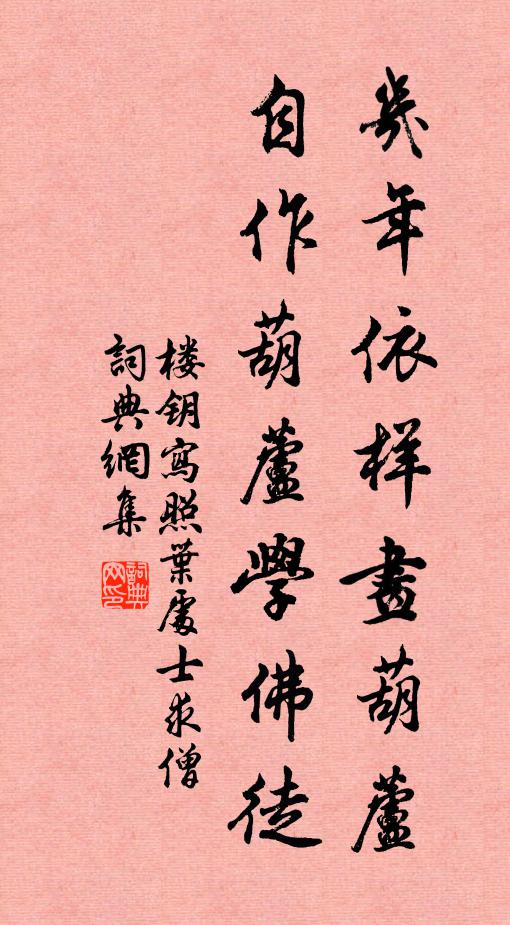 幾年依样畫葫蘆
自作葫蘆學佛徒
楼钥寫照葉處士求僧
詞典網集
詞典網印